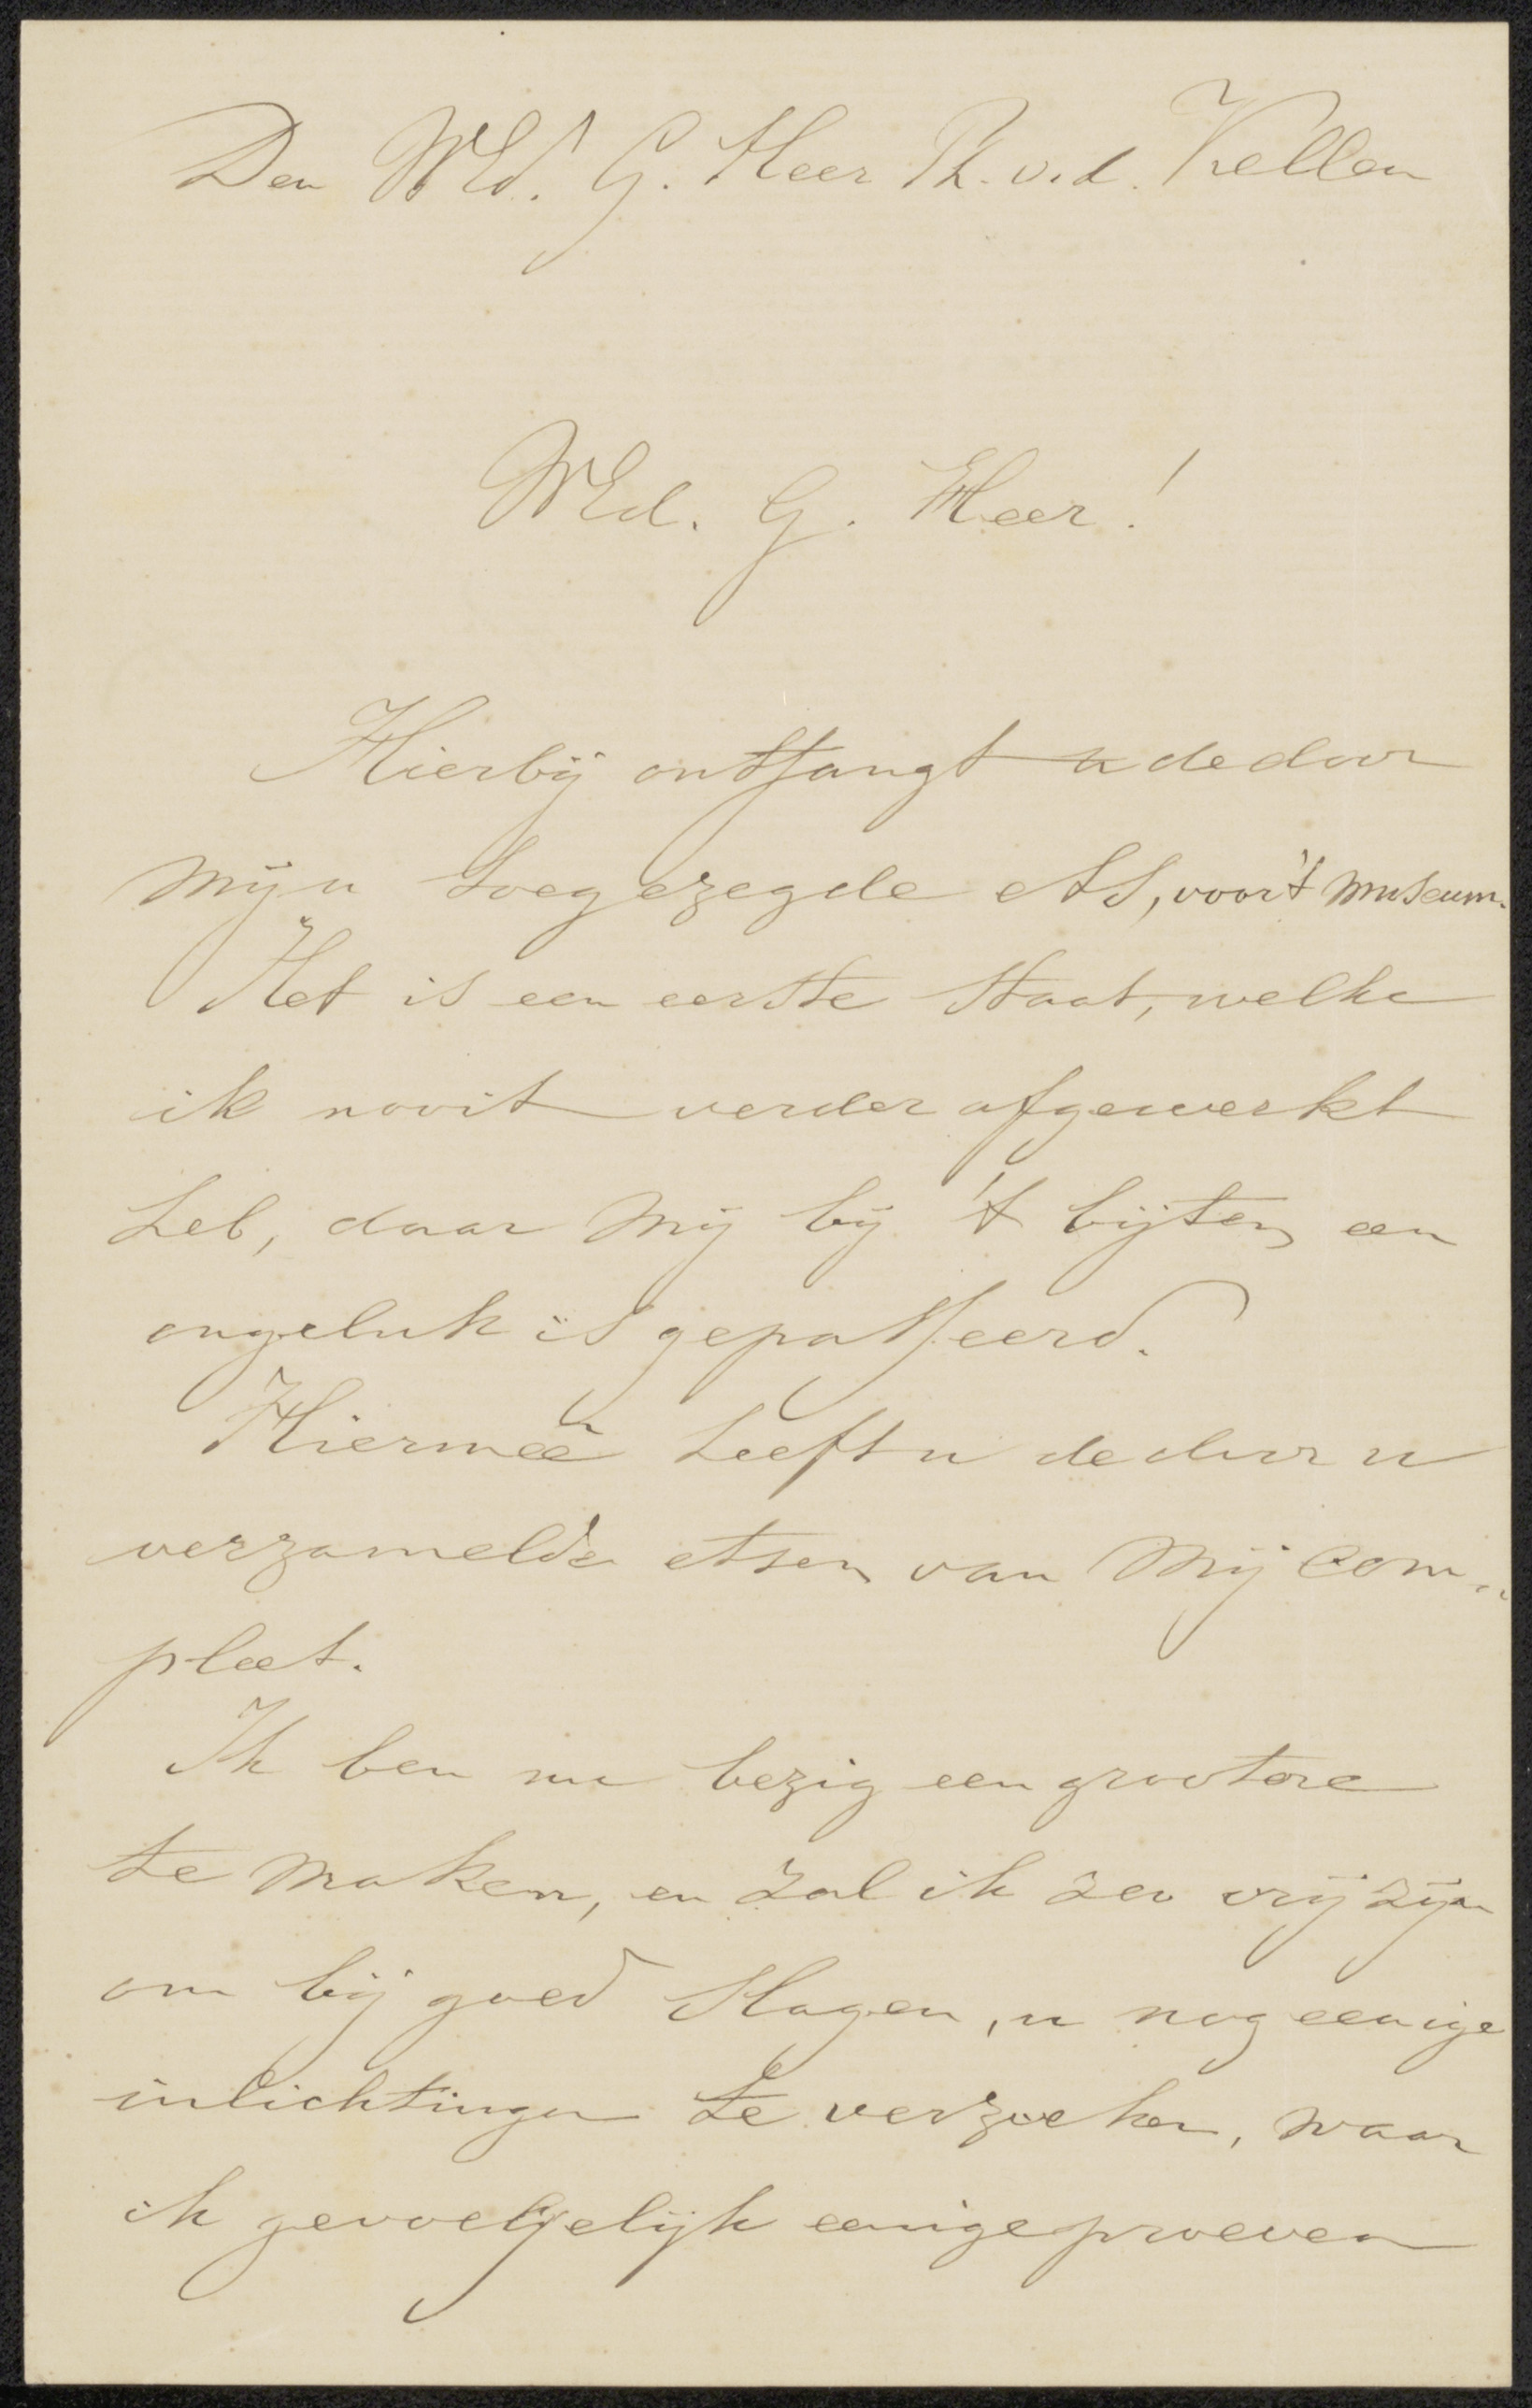 Den WEd. G. Heer Ph. v. d. Kellen
WEd. G. Heer!
Hierbij ontfangt u de door
mijn toegezegde ets, voor 't museum.
Het is een eerste staat, welke
ik nooit verder afgewerkt
heb, daar mij bij 't bijten een
ongeluk is gepasseerd.
Hiermeê heeft u de door u
verzamelde etsen van mij com„
pleet.
Ik ben nu bezig een grootere
te maken, en zal ik zoo vrij zijn
om bij goed slagen, u nog eenige
inlichtingen te verzoeken, waar
ik gevoeljelijk eenige proeven